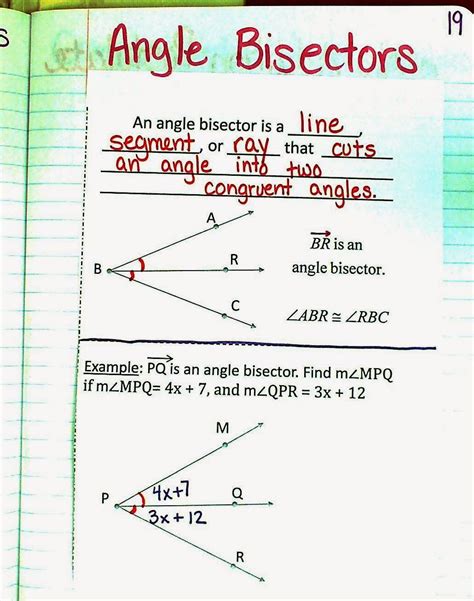 19
S
Angle Bisectors
An angle bisector is a line,
segment, or ray that cuts
an angle into two
congruent angles.
A
BR is an
R
angle bisector.
B
C
∠ABR ≅ ∠RBC
Example: PQ is an angle bisector. Find m∠MPQ
if m∠MPQ= 4x + 7, and m∠QPR = 3x + 12
M
4x+7
Q
P
3x + 12
R